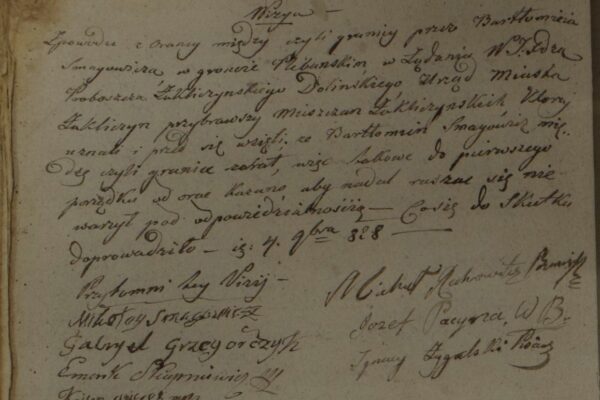 Wizya —
Zpowodu z oranej między czyli granicy przez Bartłomieia
Smagowicza, w gruncie Plebanskim w Żądaniu W. J. Xdza
Proboszcza Zakliczynskiego Dolińskiego Urząd Miasta
Zakliczyn przybrawszy Mieszczan Zakliczynskich Ktorzy
uznali i przed się wzięli, ze Bartłomiej Smagowicz mię-
dzę czyli granice zaorał, więc takowe do pierwszego
porządku od orac kazano, aby nadal ruszac się nie
warzył pod odpowiedzialnością — Cosię do Skutku
doprowadziło — 4. 9bra 828 —
Przytomni tey Wizij —
Mikołay Smagowicz
Gabryel Grzegorczyk
Michał
Jozef Pacyna W B.
Ignacy Zygalski